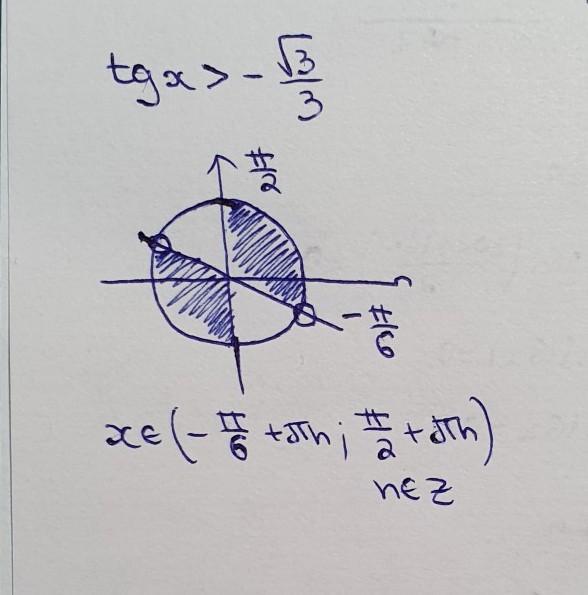 tg x > - √3/3
π/2
- π/6
x ∈ (- π/6 + πn ; π/2 + πn)
n ∈ Z